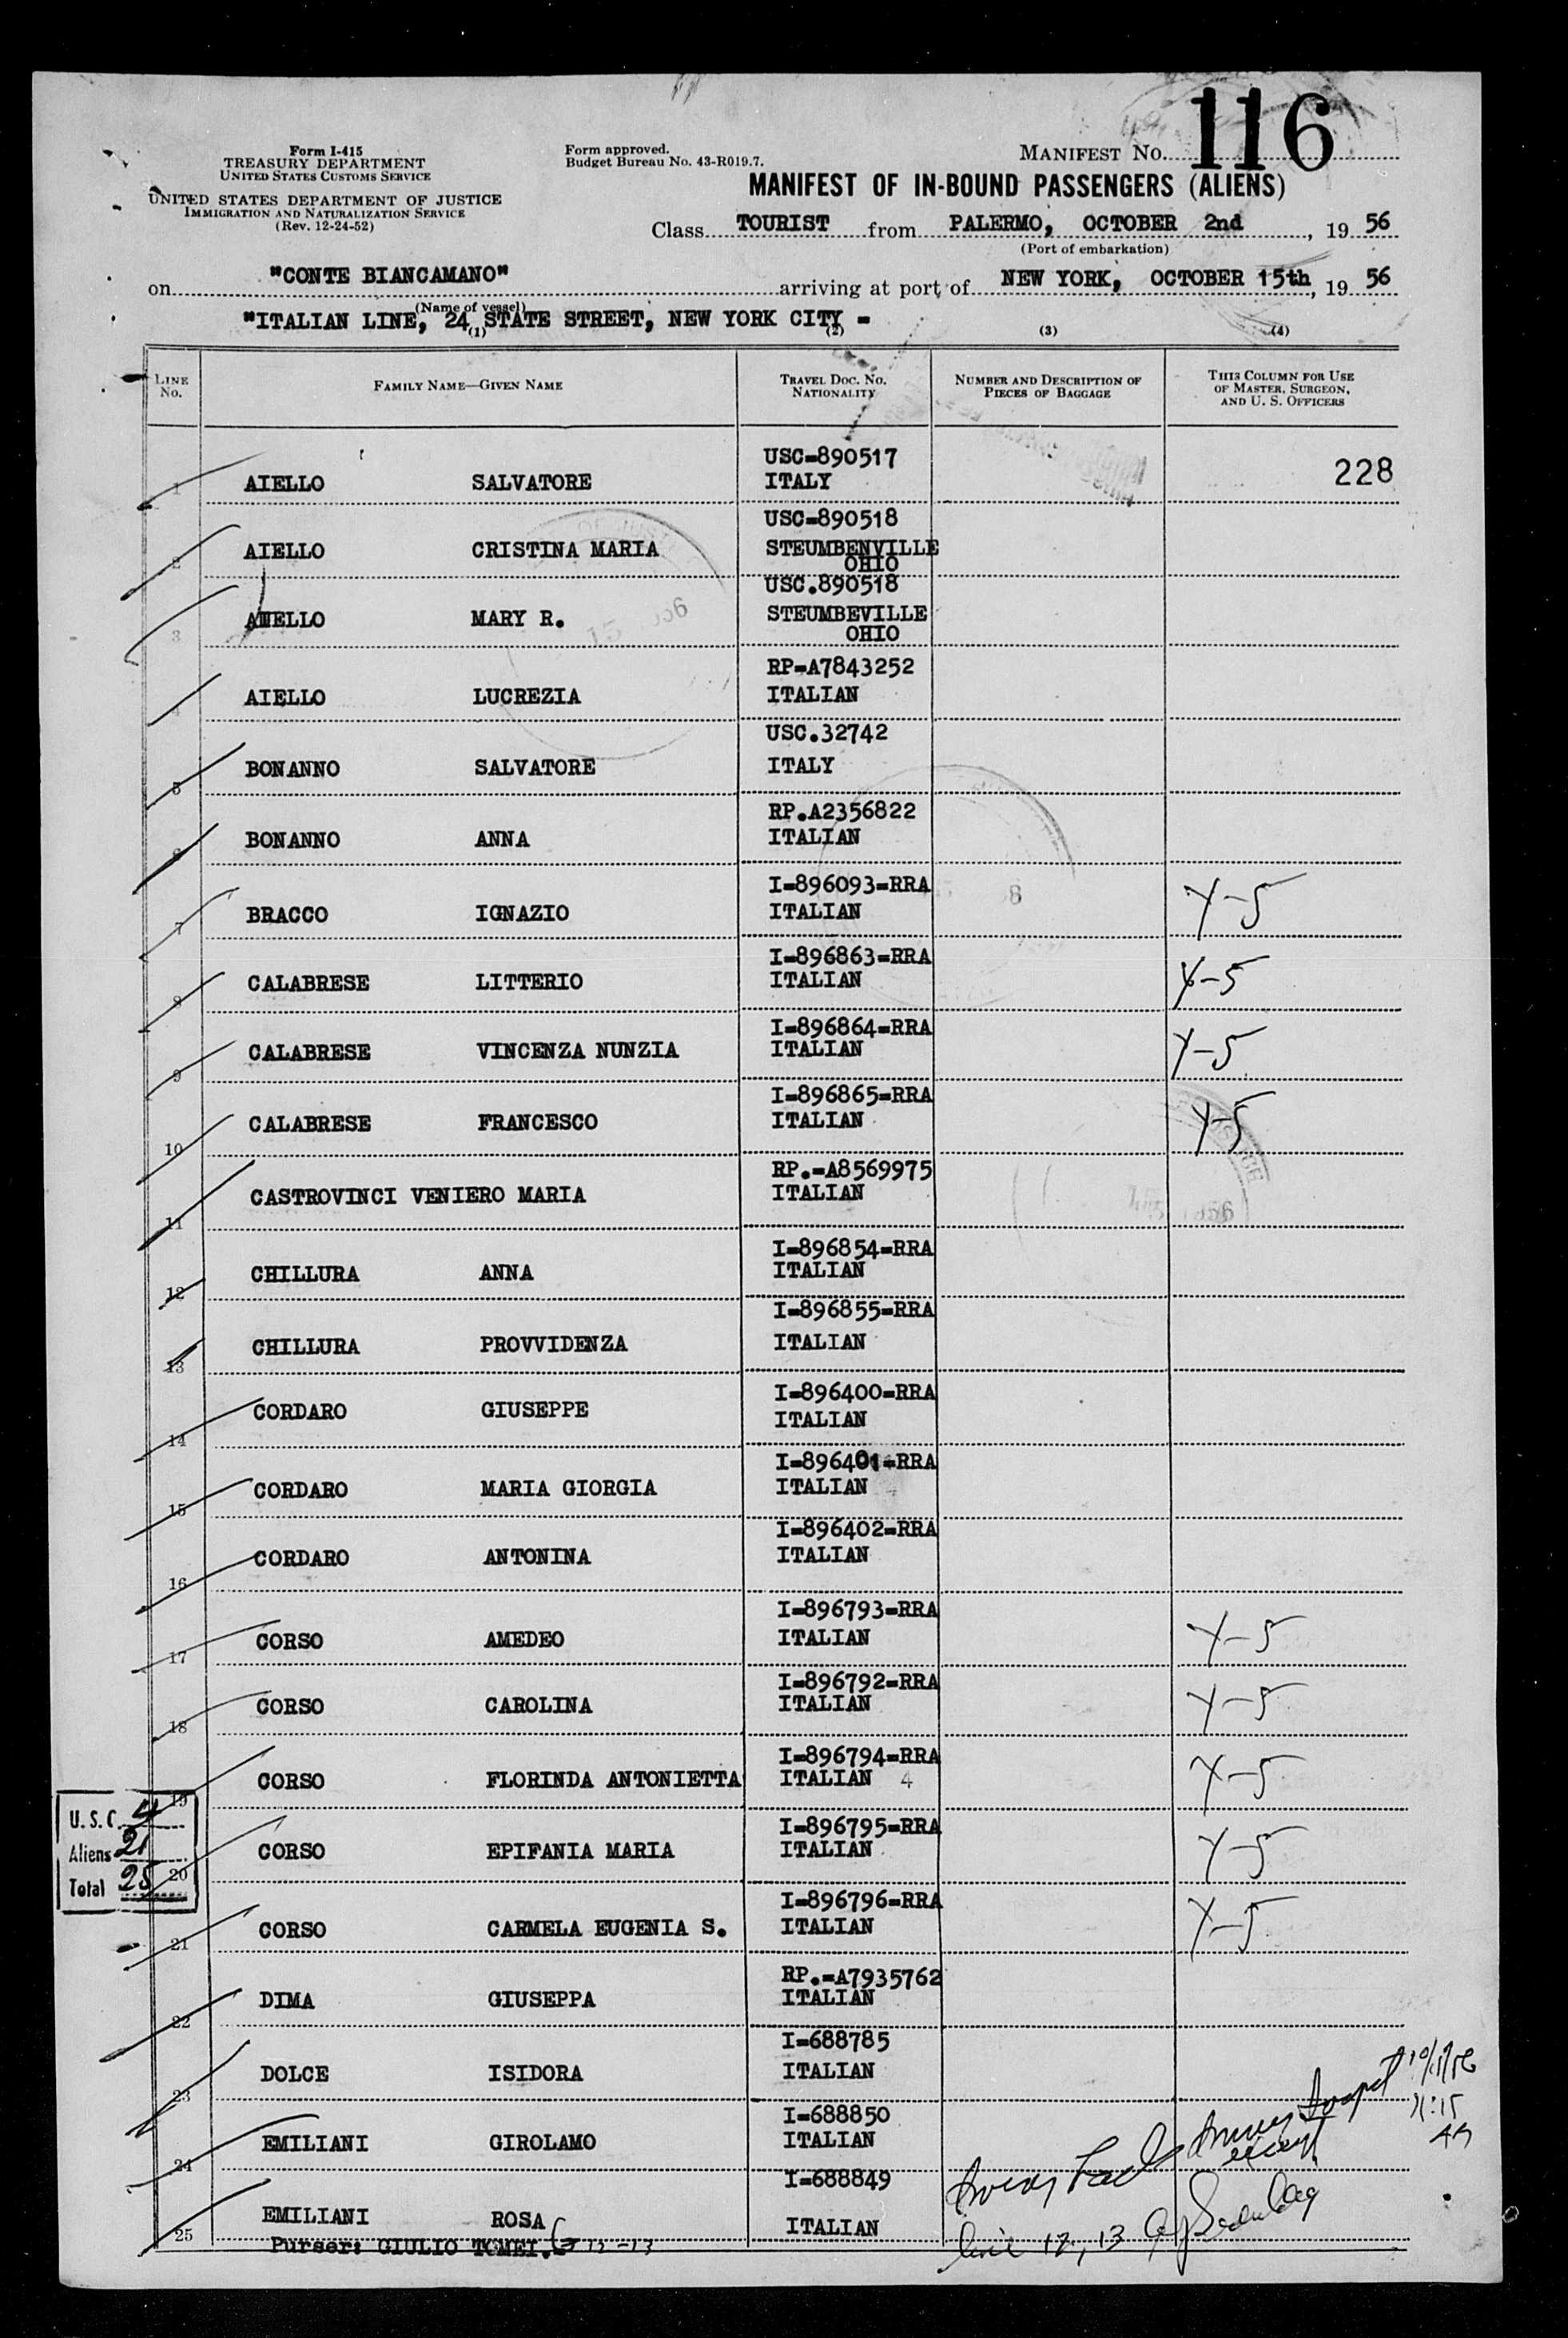 116
Form I-415
TREASURY DEPARTMENT
UNITED STATES CUSTOMS SERVICE
UNITED STATES DEPARTMENT OF JUSTICE
IMMIGRATION AND NATURALIZATION SERVICE
(Rev. 12-24-52)
Form approved.
Budget Bureau No. 43-R019.7.
MANIFEST NO.
MANIFEST OF IN-BOUND PASSENGERS (ALIENS)
Class TOURIST from PALERMO, OCTOBER 2nd, 19 56
(Port of embarkation)
on "CONTE BIANCAMANO" arriving at port of NEW YORK, OCTOBER 15th, 19 56
(Name of vessel)
"ITALIAN LINE, 24 STATE STREET, NEW YORK CITY -
(1) (2) (3) (4)
LINE NO. FAMILY NAME—GIVEN NAME TRAVEL DOC. NO. NATIONALITY NUMBER AND DESCRIPTION OF PIECES OF BAGGAGE THIS COLUMN FOR USE OF MASTER, SURGEON, AND U. S. OFFICERS
USC=890517
1 AIELLO SALVATORE ITALY 228
USC=890518
2 AIELLO CRISTINA MARIA STEUMBENVILLE
OHIO
USC.890518
3 AIELLO MARY R. STEUMBEVILLE
OHIO
RP=A7843252
4 AIELLO LUCREZIA ITALIAN
USC.32742
5 BONANNO SALVATORE ITALY
RP.A2356822
6 BONANNO ANNA ITALIAN
I=896093=RRA
7 BRACCO IGNAZIO ITALIAN Y-5
I=896863=RRA
8 CALABRESE LITTERIO ITALIAN Y-5
I=896864=RRA
9 CALABRESE VINCENZA NUNZIA ITALIAN Y-5
I=896865=RRA
10 CALABRESE FRANCESCO ITALIAN Y-5
RP.=A8569975
11 CASTROVINCI VENIERO MARIA ITALIAN
I=896854=RRA
12 CHILLURA ANNA ITALIAN
I=896855=RRA
13 CHILLURA PROVVIDENZA ITALIAN
I=896400=RRA
14 CORDARO GIUSEPPE ITALIAN
I=896401=RRA
15 CORDARO MARIA GIORGIA ITALIAN
I=896402=RRA
16 CORDARO ANTONINA ITALIAN
I=896793=RRA
17 CORSO AMEDEO ITALIAN Y-5
I=896792=RRA
18 CORSO CAROLINA ITALIAN Y-5
I=896794=RRA
19 CORSO FLORINDA ANTONIETTA ITALIAN 4 Y-5
U.S.C. 4
Aliens 21
Total 25
I=896795=RRA
20 CORSO EPIFANIA MARIA ITALIAN Y-5
I=896796=RRA
21 CORSO CARMELA EUGENIA S. ITALIAN Y-5
RP.=A7935762
22 DIMA GIUSEPPA ITALIAN
I=688785
23 DOLCE ISIDORA ITALIAN
I=688850
24 EMILIANI GIROLAMO ITALIAN
I=688849
25 EMILIANI ROSA ITALIAN
11:15
AM
except
line 12, 13
Purser: GIULIO TOMEI.